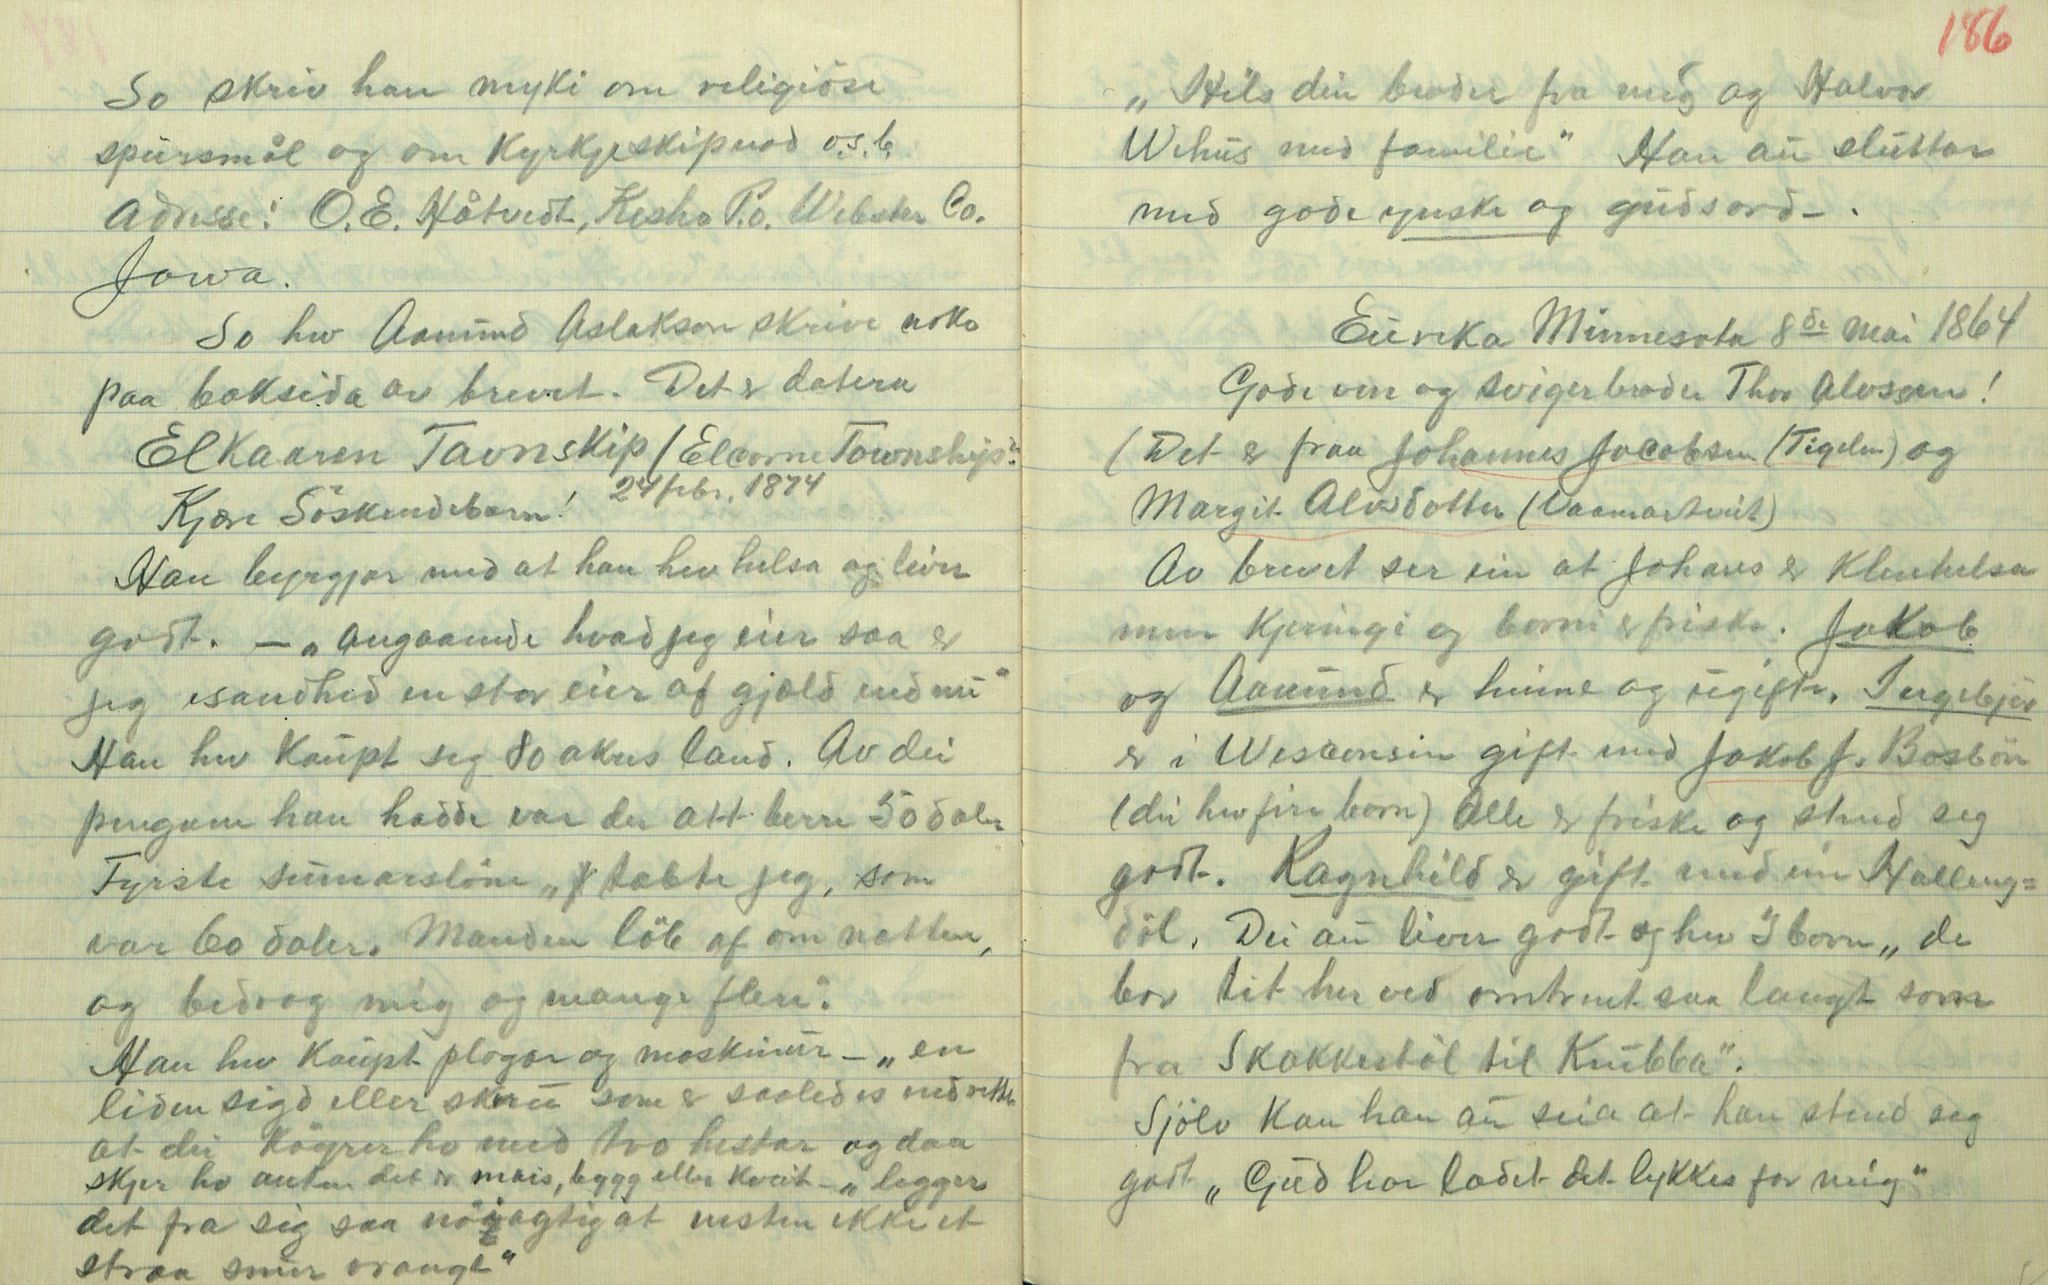 So skriv han myki om religiöse
spursmål og om Kyrkjeskipnad o.s.b.
Adresse: O.E. Håtvedt, Kesho P.o. Webster Co.
Jowa.
So hev Aamund Aslakson skrive noko
paa baksida av brevet. Det er datera
Elkaaren Tavnskip (Elcorne Township?
24 febr. 1874
Kjære Söskendebarn!
Han byrgjar med at han hev helsa og liver
godt. – „Angaaende hvad jeg eier saa er
jeg isandhed en stor eier af gjæld ends nu"
Han hev Kaupt seg 80 akres land. Av dei
pengane han hadde var der att berre 50 daler
Fyrste sumarslöne „ tabte jeg, som
var 60 daler. Manden löb af om natten,
og bedrog mig og mange flere".
Han hev Kaupt plogar og maskinur – „en
liden sigd eller skruu som er saaledes indrettet
at deiKöyrer ho med tvo hestar og daa
skjer ho anten det er mais, bygg eller kveit – „legger
det fra sig saa nöiagtig at nesten ikke et
straa snur vrangt"
186
„Hils din broder fra meg og Halvor
Wehus med familie" Han au sluttar
med gode ynske og gudsord –.
Eureka Minnesota 8de mai 1864
Gode ven og svigerbroder Thor Alvsson!
(Det er fraa Johannes Jacobsen (Tigelen) og
Margit Alvsdotter (Vaamartveit)
Av brevet ser ein at Johans er Klenhelsa
men Kjeringi og borni er friske. Jakob
og Aamund er heime og ugifte. Ingebjör
er i Wisconsin gift med Jakob J. Bosbön
(dei hev fire born) Alle er friske og stend seg
godt. Ragnhild er gift med ein Halling=
döl. Dei au liver godt og hev 3 born „ de
bor tit her ved omtrent saa langt som
fra Skakkestöl til Knubba".
Sjölv Kan han au seia at han stend seg
godt „Gud har ladet det lykkes for mig"